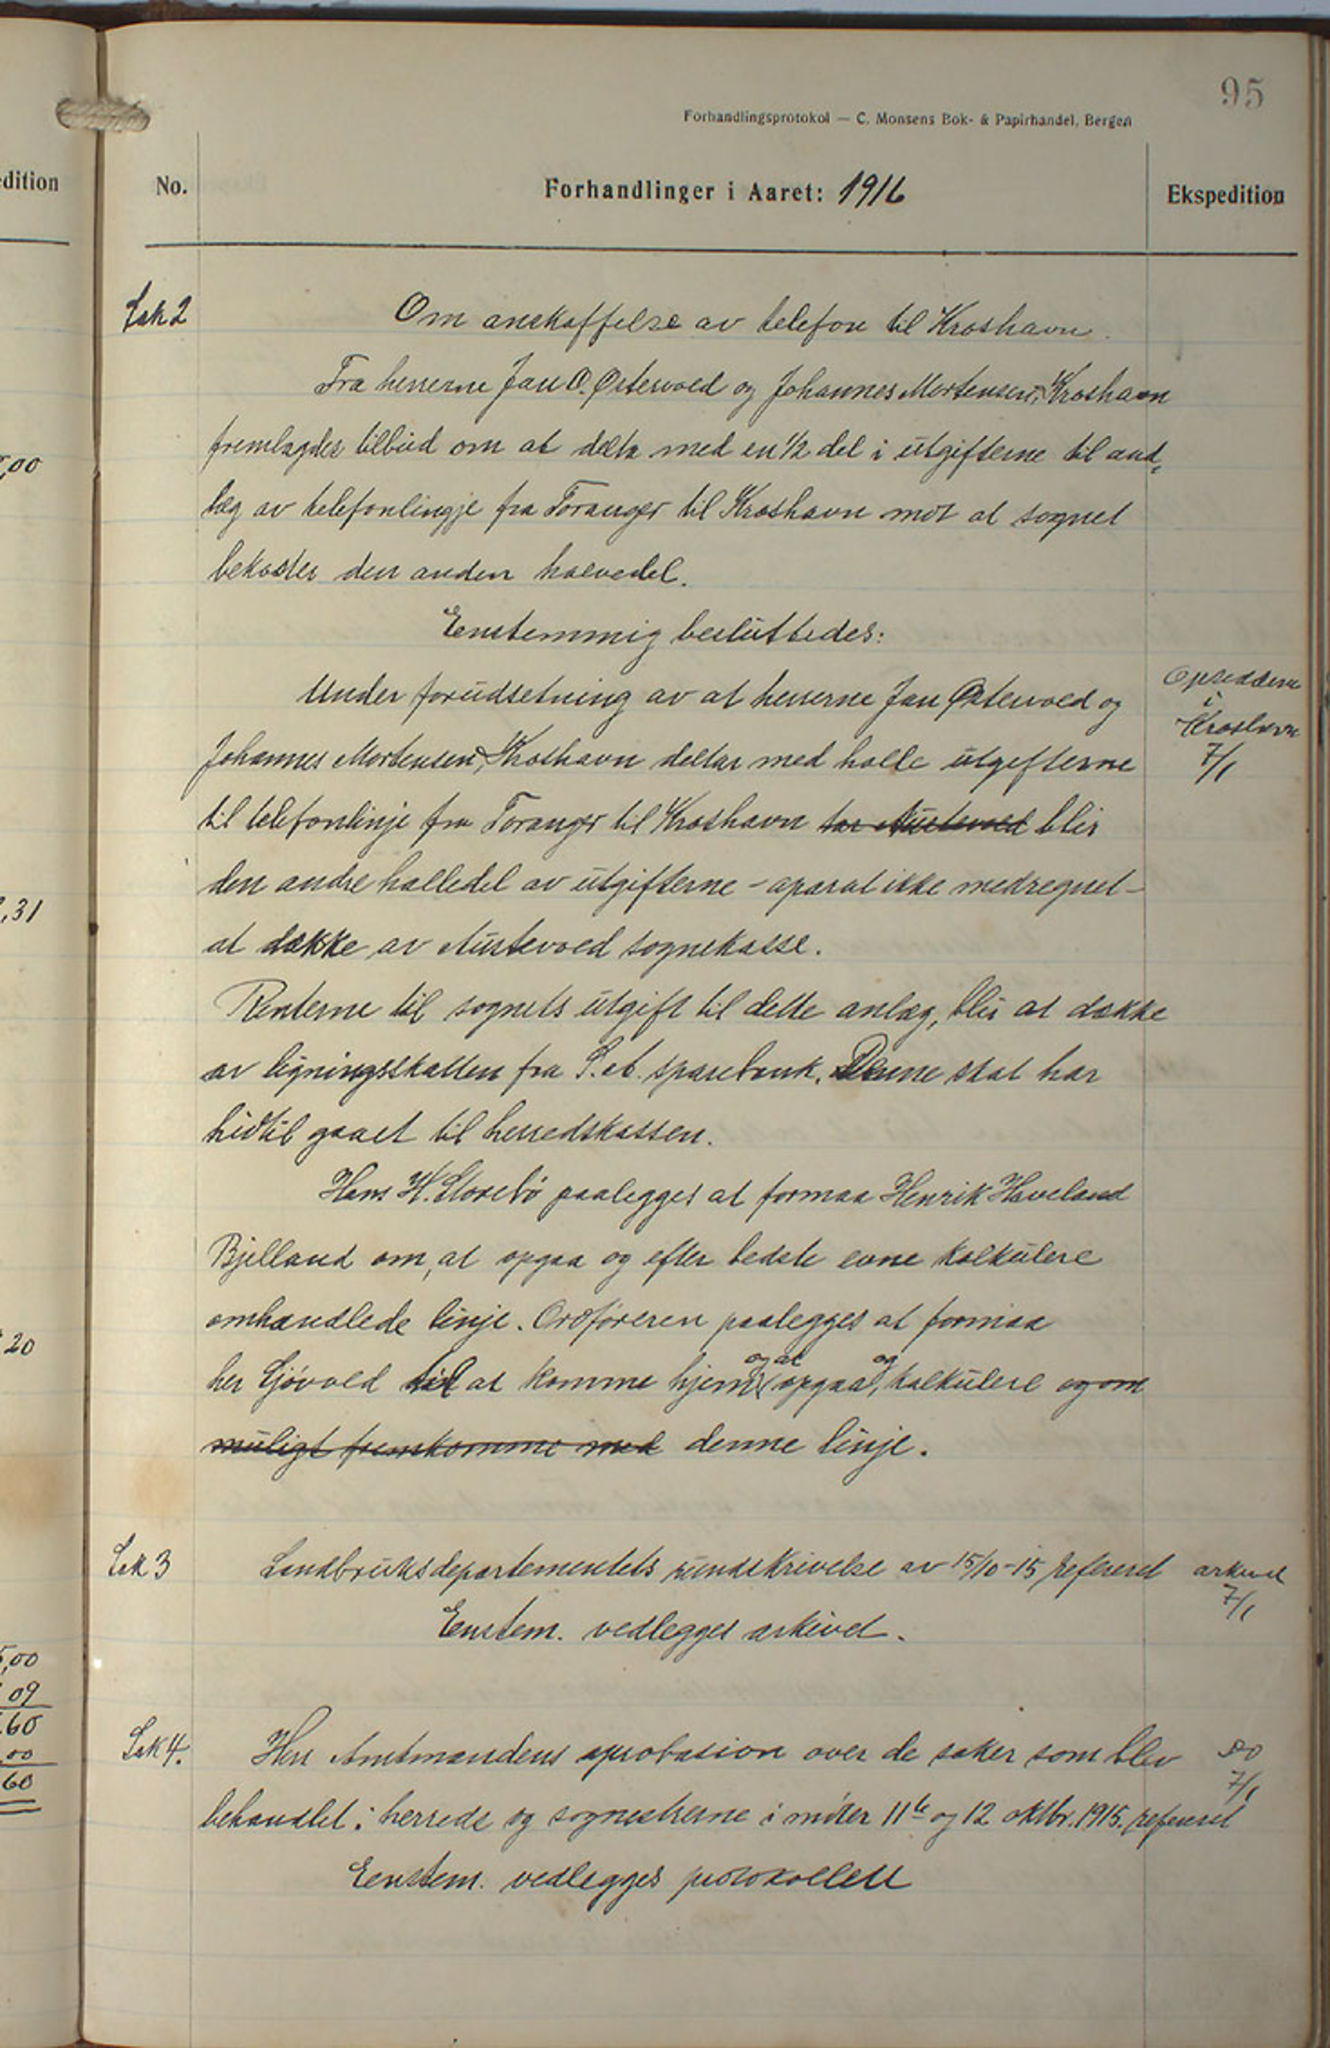 95
Forhandlingsprotokol — C. Monsens Bok- & Papirhandel, Bergen
dition
No.
Forhandlinger i Aaret: 1916
Ekspedition
Sak 2
Om anskaffelse av telefon til Kroshavn.
Fra herrerne Jan O. Østervold og Johannes Mortensen, Kroshavn
fremlagdes tilbud om at delta med en 1/2 del i utgifterne til and,
læg av telefonlingje fra Toranger til Kroshavn mot at sognet
bekoster den anden halvedel.
Enstemmig besluttedes:
Under forudsetning av at herrerne Jan Østervold og
Johannes Mortensen, Kroshavn deltar med halle utgifterne
til telefonlinje fra Toranger til Kroshavn tar Austevold blir
den andre halledel av utgifterne - aparat ikke medregnet -
at dække av Austevold sognekasse.
Renterne til sognets utgift til dette anlæg, blir at dække
av ligningsskatten fra S. A. sparebank. Denne skat har
hidtil gaaet til herredskassen.
Hans H. Storebö paalegges at formaa Henrik Haveland
Bjelland om, at opgaa og efter bedste evne kalkulere
omhandlede linje. Ordføreren paalegges at formaa
her Gjövold til at komme hjem og at opgaa, og kalkulere og om
muligt fremkomme med denne linje.
Opsedderne
i
Kroshavn
7/1
Sak 3
Landbruksdepartementets rundskrivelse av 15/10-15 referert
Enstem. vedlegges arkivet.
arkivet
7/1
Sak 4.
Herr Amtmandens aprobasion over de saker som blev
behandlet i herreds og sognestyrerne i möter 11te og 12 oktbr. 1915. referert
Eenstem. vedlegges protokollen
do
7/1
,00
,31
20
5,00
09
60
00
60